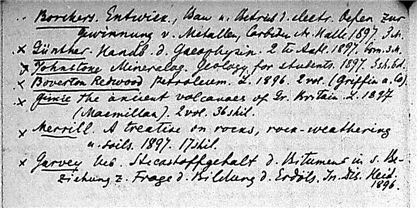 Borchers. Entwick., Bau u. Betrieb d. electr. Oefen zur
Gewinnung v. Metallen, Carbiden etc. Halle, 1897. 3 M.
x Günther. Handb. d. Geophysik. 2te Aufl. 1897.
x Johnstone. Mineralog. Geology for students. 1897.
x Boverton Redwood. Petroleum. L. 1896. 2 vol. (Griffin a. Co).
x the ancient volcanoes of Gr. Britain. L. 1897
(Macmillan). 2 vol. 36 shil.
x Merrill. A treatise on rocks, rock-weathering
a. soils. 1897. 17 shil.
x Garvey Ueb. Stickstoffgehalt d. Bitumens in s. Be-
ziehung z. Frage d. Bildung d. Erdöls. In. Dis. Heid.
1896.